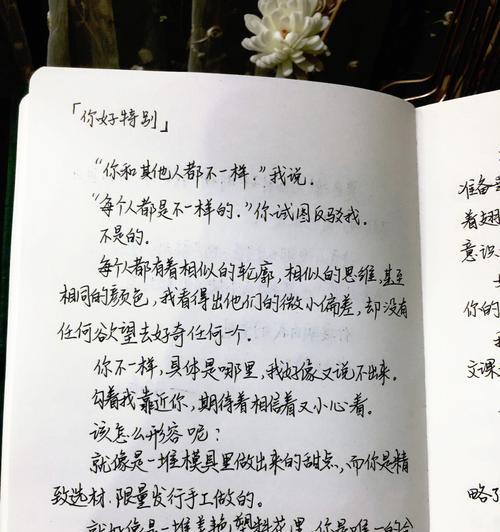 「你好特别」
“你和其他人都不一样.”我说.
“每个人都是不一样的.”你试图反驳我.
不是的.
每个人都有着相似的轮廓,相似的思维,甚至
相同的颜色,我看得出他们的微小偏差,却没有
任何欲望去好奇任何一个.
你不一样,具体是哪里,我好像又说不出来.
勾着我靠近你,期待着相信着又小心着.
该怎么形容呢:
就像是一堆模具里做出来的甜点,而你是精
致选材.限量发行手工做的.
就好像是一堆差艳塑料花里,你是唯一的
准备
着翅
意识
你的
我
文课
略了